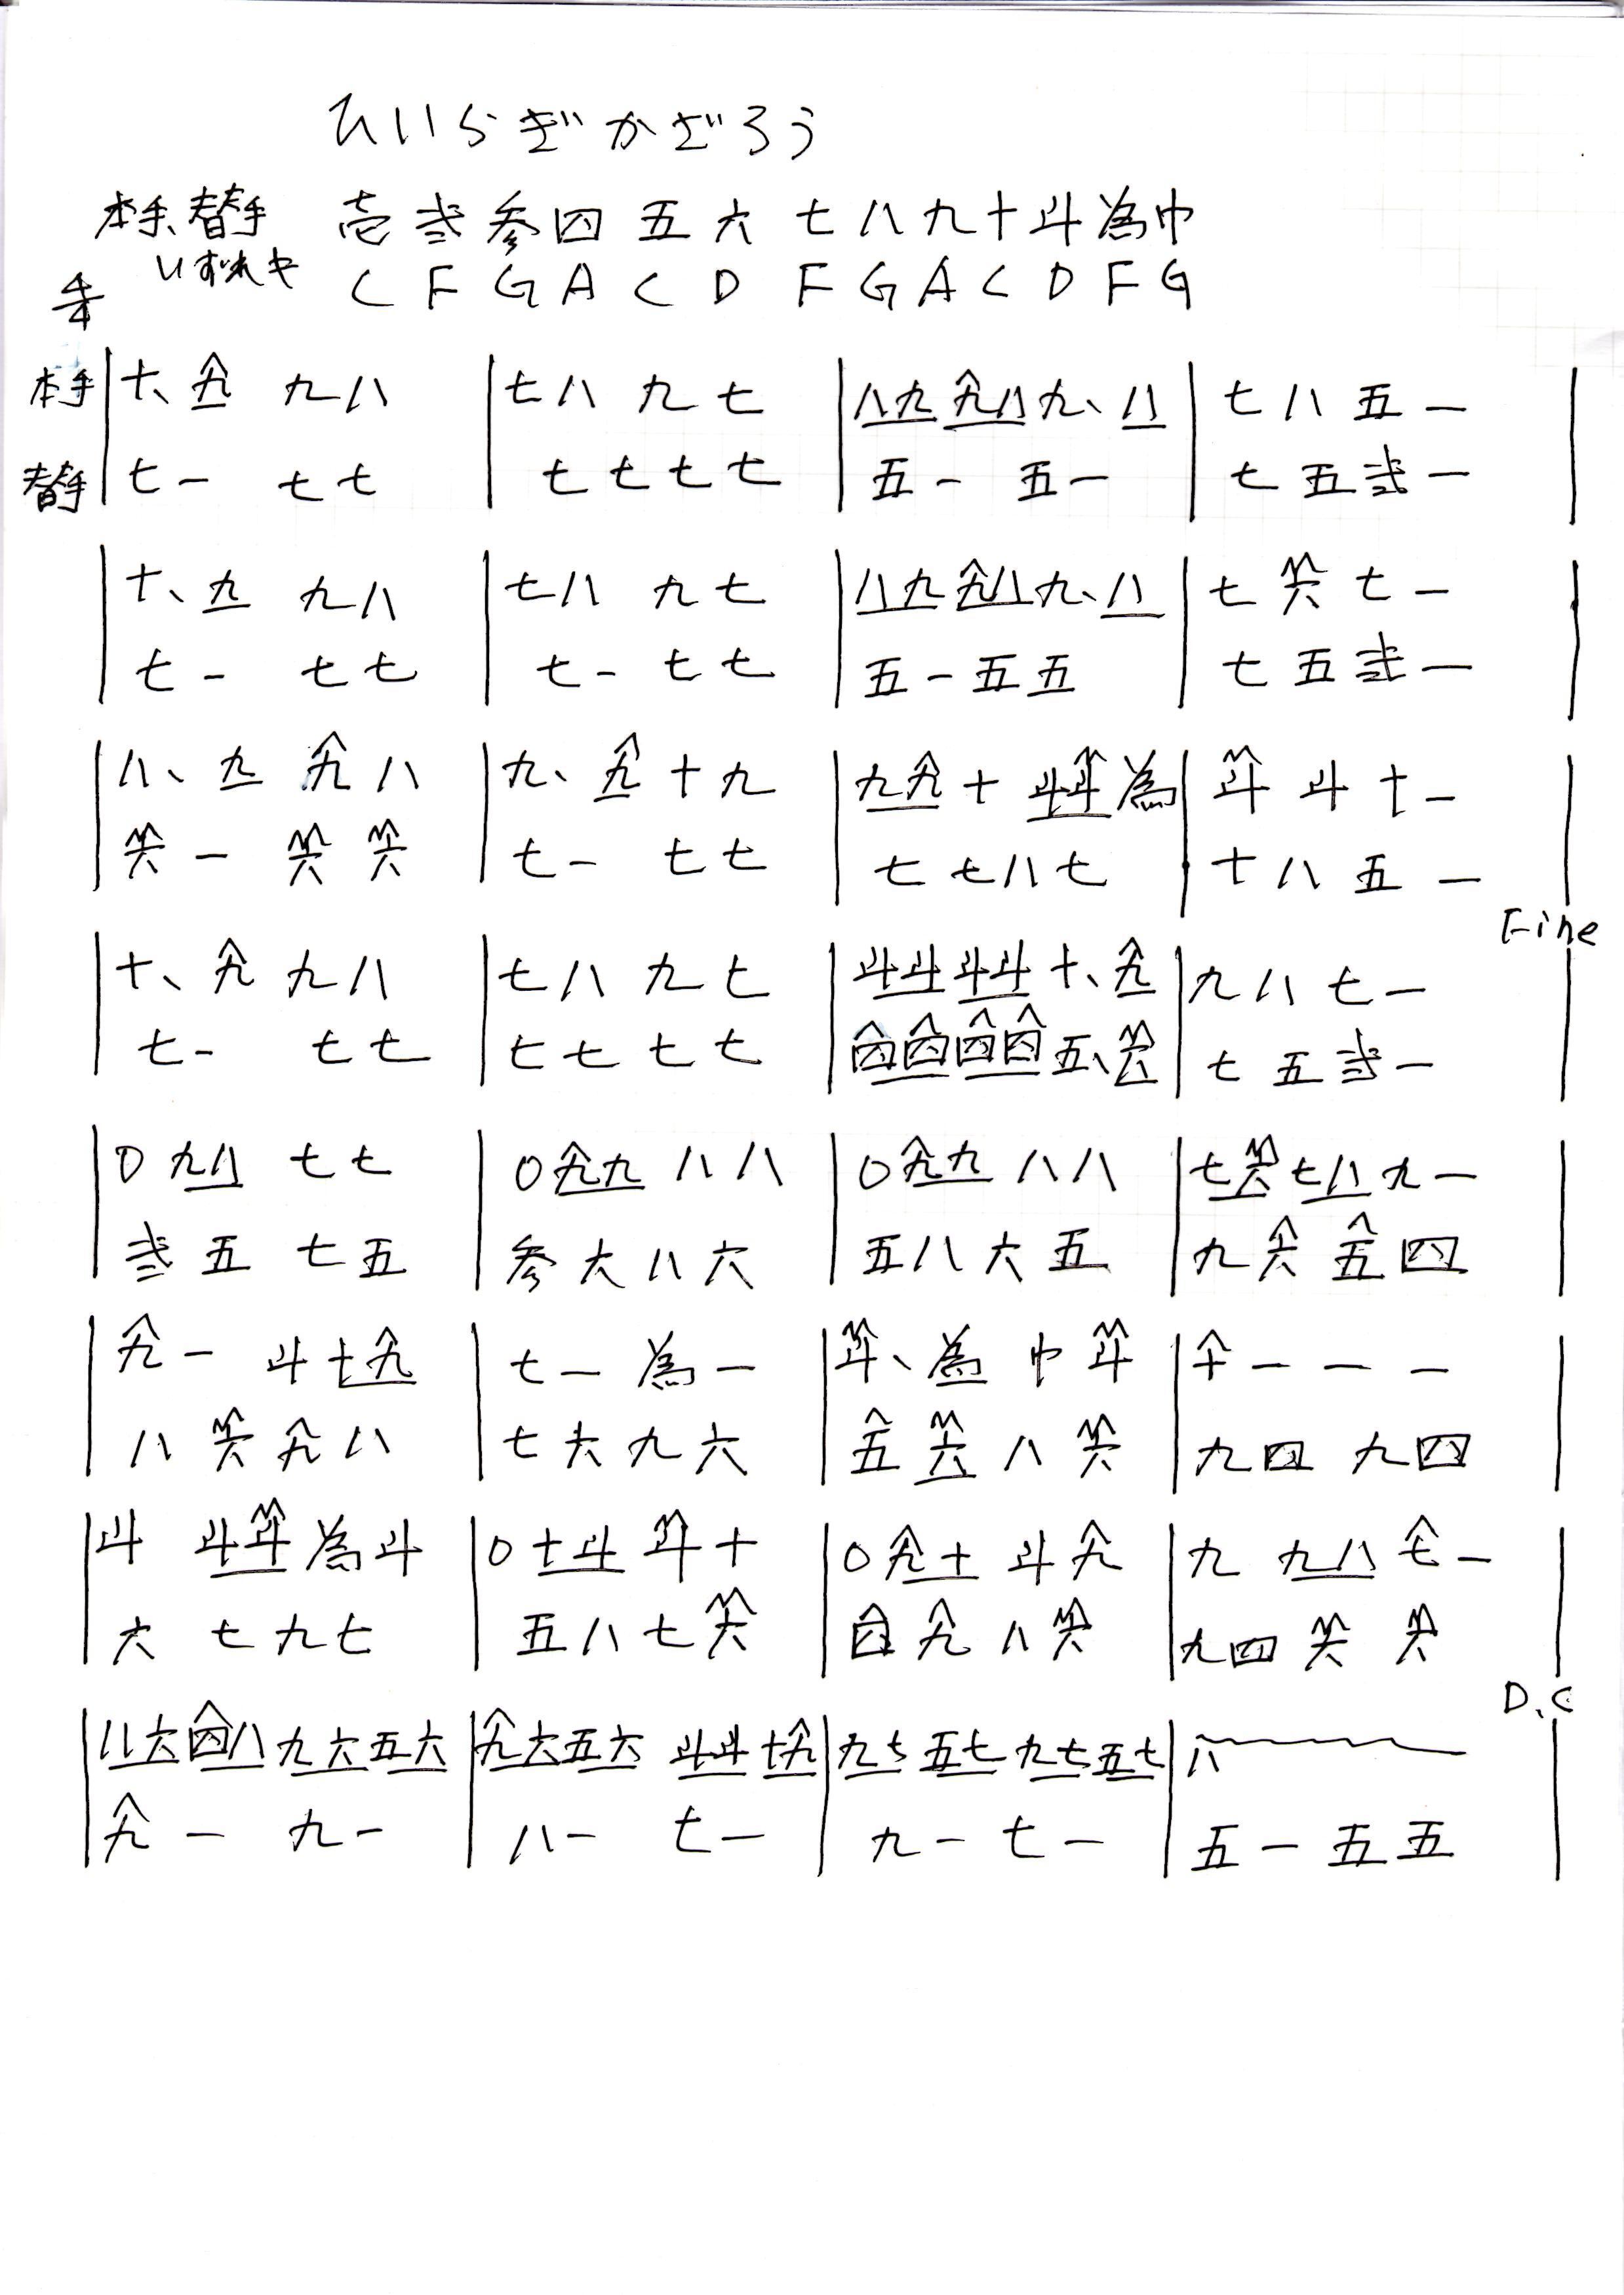 ひいらぎかざろう
本手、替手 壱弐参四五六七八九十斗為巾
いずれも C F G A C D F G A C D F G
本手 十、九 九八 七八九七 八九九八九、八 七八五ー
替手 七ー七七 七七七七 五ー五ー 七五弐ー
十、九 九八 七八九七 八九九八九、八 七六七ー
七ー七七 七ー七七 五ー五五 七五弐ー
八、九九八 九、九十九 九九十斗斗為 斗斗十ー
六ー六六 七ー七七 七七八七 十八五ー
Fine
十、九九八 七八九七 斗斗斗斗十、九 九八七ー
七ー七七 七七七七 四四四四五、六 七五弐ー
0九八七七 0九九八八 0九九八八 七六七八九ー
弐五七五 参六八六 五八六五 九六五四
九ー斗十九 七ー為ー 斗、為巾斗 十ーーー
八六九八 七六九六 五六八六 九四九四
斗斗斗為斗 0十斗斗十 0九十斗九 九九八七ー
六七九七 五八七六 四九八六 九四六六
D.C
八六四八九六五六 九六五六斗斗十九 九七五七九七五七 八
九ー九ー 八ー七ー 九ー七ー 五ー五五